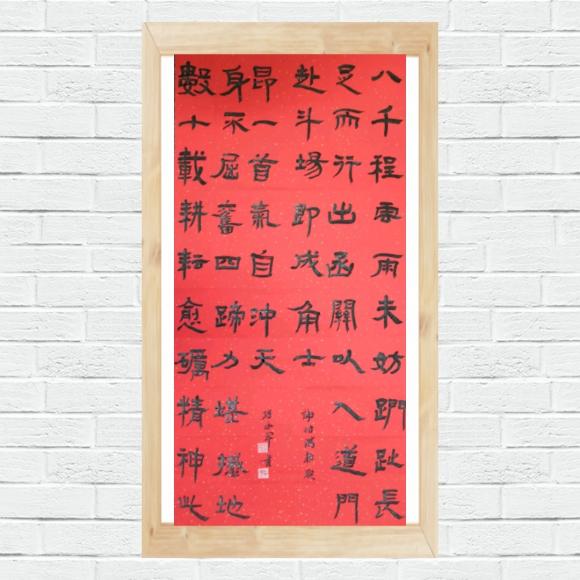 八千程雲雨未妨趾長
足而行出函關以入道門
赴斗場即成角士
數十載耕耘愈礪精神此
身不屈奮四蹄力堪撼地
昂一首氣自沖天